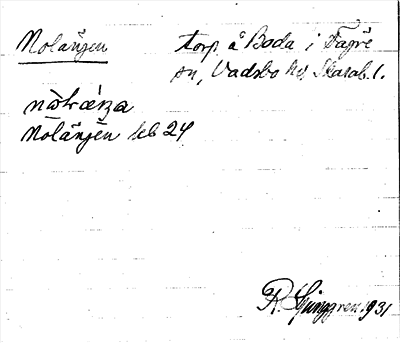 Nolängen torp å Boda i Fägre
sn, Vadsbo hd, Skarab. l.
Nolängen leb 24
R. Ljunggren 1931